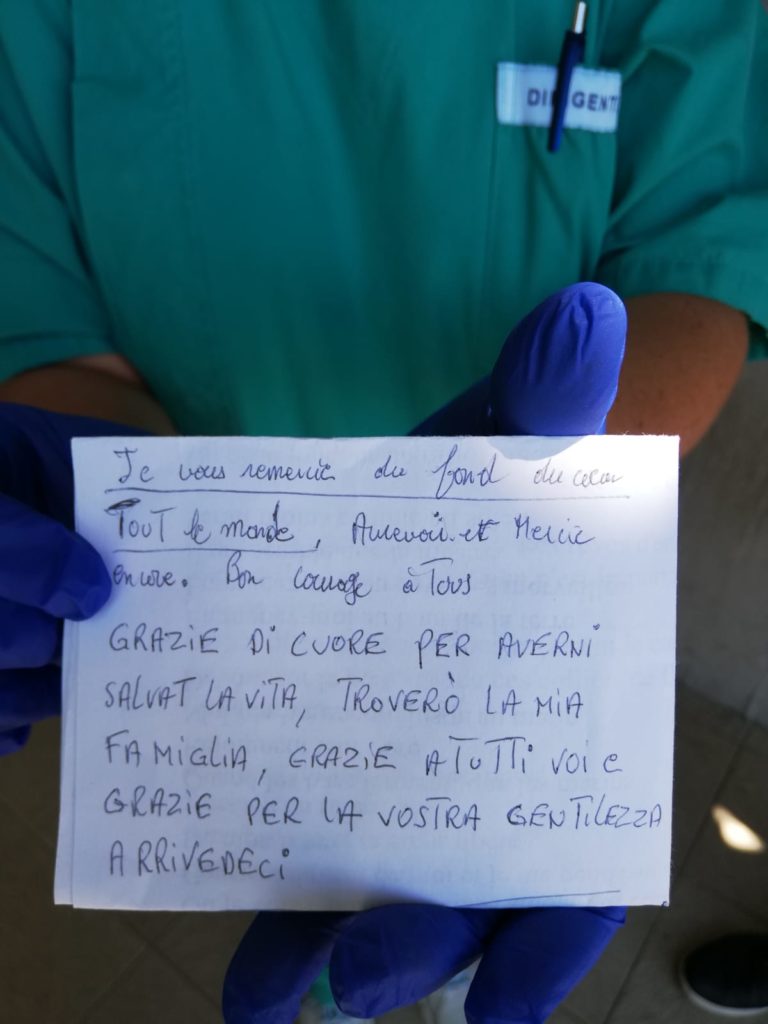 DIRIGENT
Je vous remercie du fond du cœur
Tout le monde, Aurevoir et Mercie
encore. Bon courage à Tous
GRAZIE Di CUORE PER AVERNI
SALVAT LA ViTA, TROVERÒ LA MIA
FAMIGLIA, GRAZIE A TUTTi VOi e
GRAZIE PER LA VOSTRA GENTiLEZZA
ARRIVEDECi